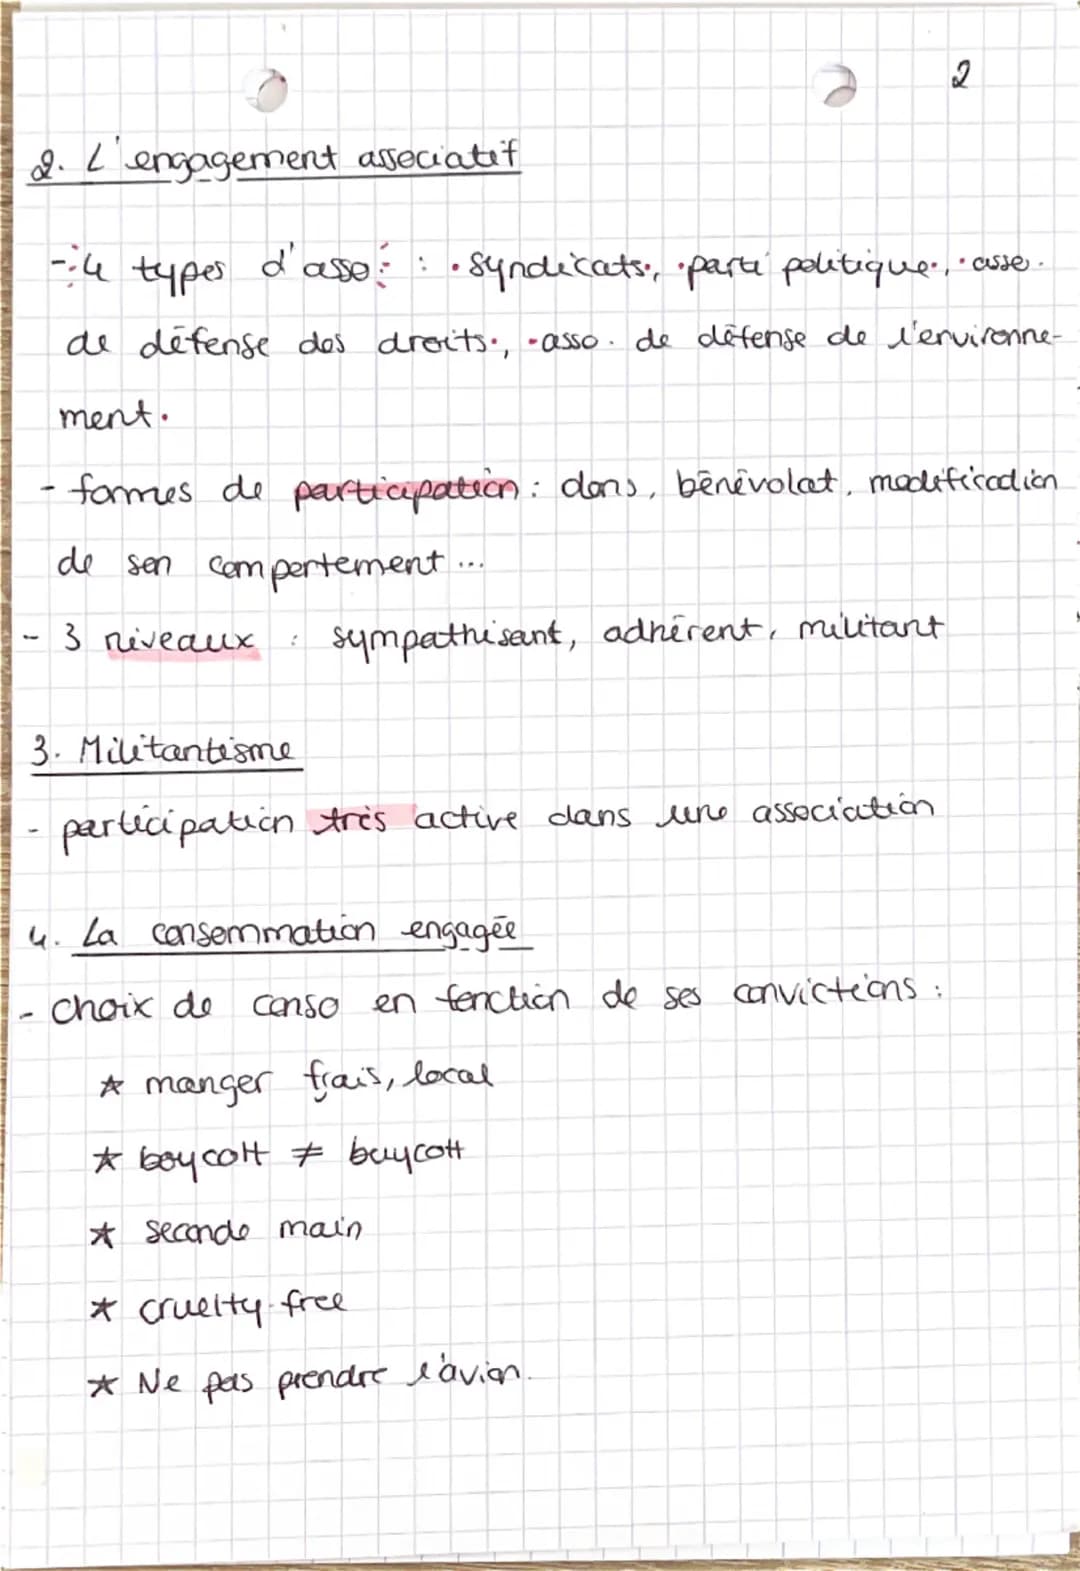 2
2. L'engagement associatif
- 4 types d'asso : • syndicats •, • parti politique •, • asso.
de défense des droits •, • asso. de défense de l'environne-
ment •
- formes de participation : dons, bénévolat, modification
de son comportement ...
- 3 niveaux : sympathisant, adhérent, militant
3. Militantisme
- participation très active dans une association
4. La consommation engagée
- choix de conso en fonction de ses convictions :
☆ manger frais, local
☆ boycott ≠ buycott
☆ seconde main
☆ cruelty-free
☆ Ne pas prendre l'avion.